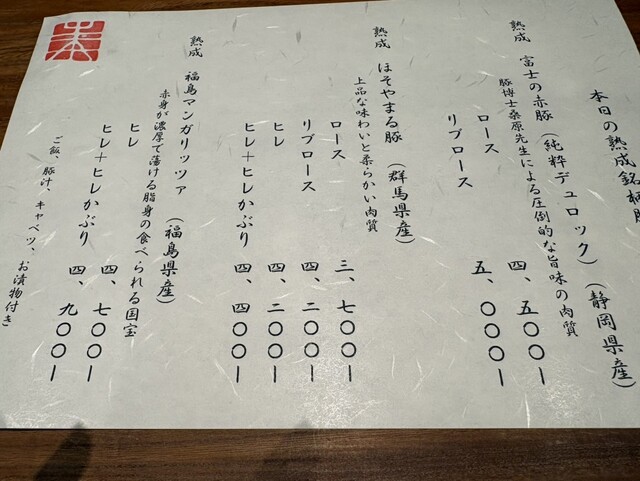 本日の熟成銘柄
熟成 富士の赤豚(純粋デュロック)(静岡県産)
豚博士桑原先生による圧倒的な旨味の肉質
ロース 四、五〇〇ー
リブロース 五、〇〇〇ー
熟成 ほそやまる豚(群馬県産)
上品な味わいと柔らかい肉質
ロース 三、七〇〇ー
リブロース 四、二〇〇ー
ヒレ 四、二〇〇ー
ヒレ+ヒレかぶり 四、四〇〇ー
熟成 福島マンガリッツァ(福島県産)
赤身が濃厚で蕩ける脂身の食べられる国宝
ヒレ 四、七〇〇ー
ヒレ+ヒレかぶり 四、九〇〇ー
ご飯、豚汁、キャベツ、お漬物付き